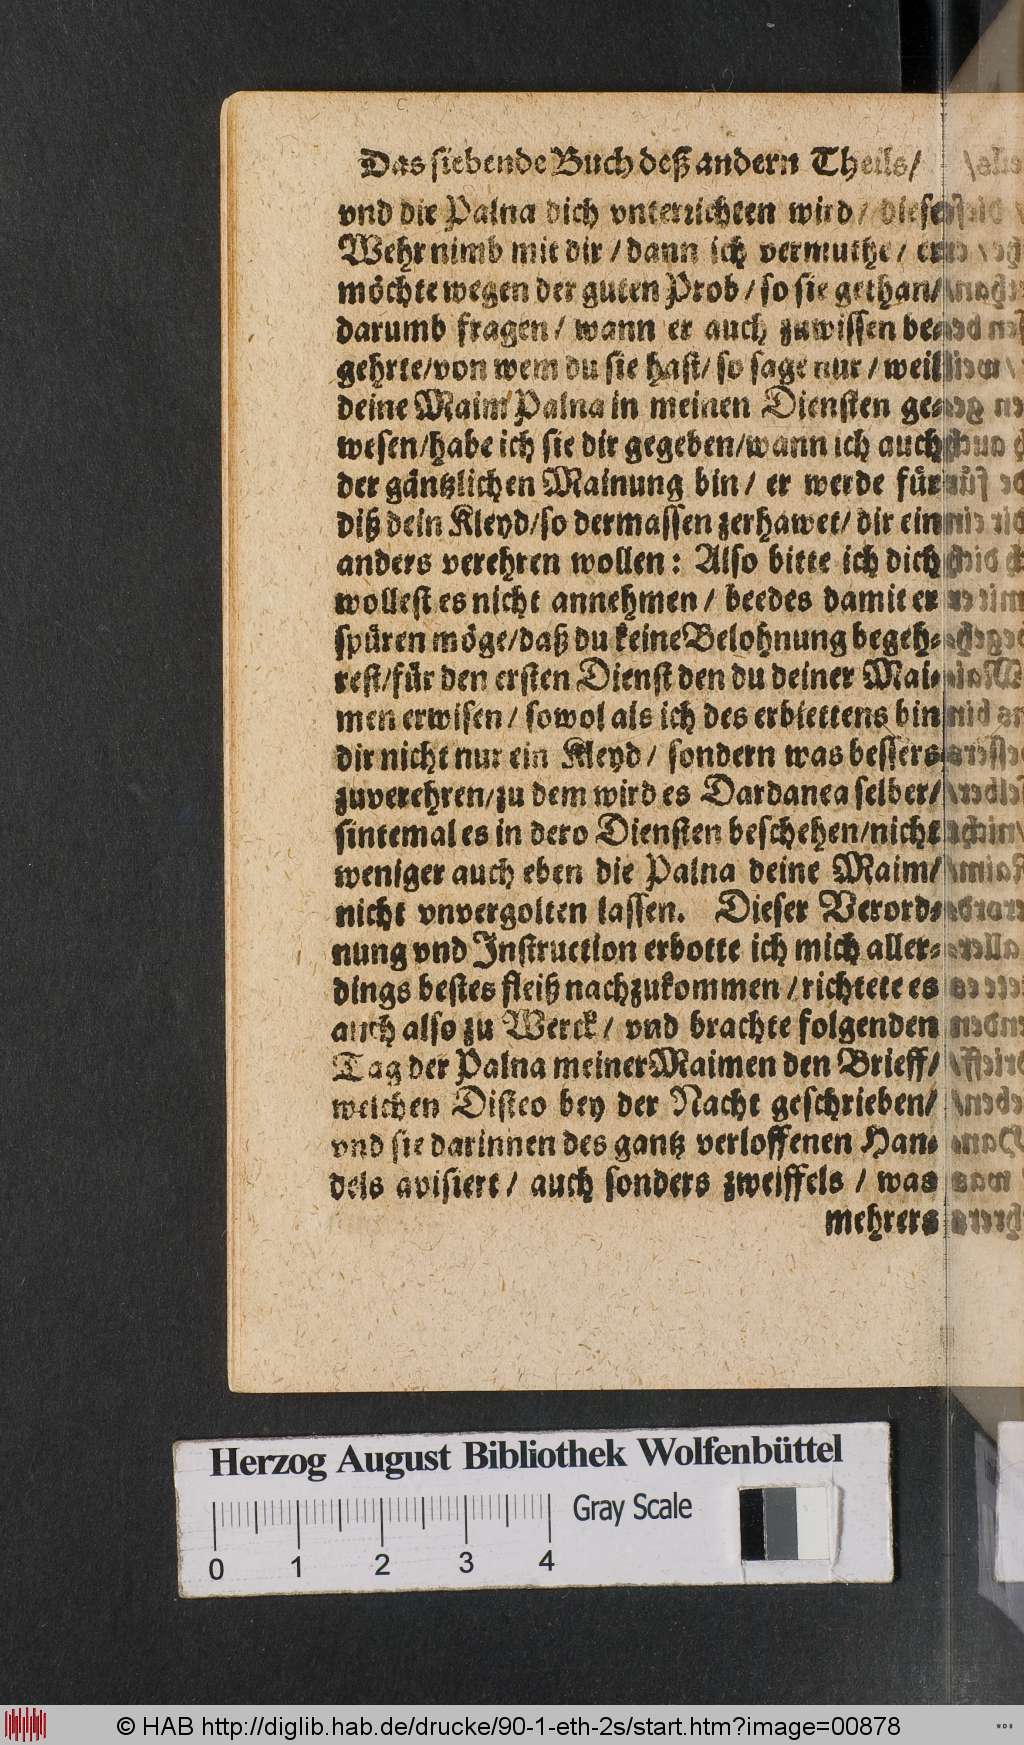 Das siebende Buch deß andern Theils/
vnd die Palna dich vnterrichten wird / diese
Wehr nimb mit dir / dann ich vermuthe / er
möchte wegen der guten Prob / so sie gethan/
darumb fragen / wann er auch zuwissen be-
gehrte/von wem du sie hast/ so sage nur / weil
deine Maim Palna in meinen Diensten ge-
wesen/habe ich sie dir gegeben/wann ich auch
der gäntzlichen Mainung bin / er werde für
diß dein Kleyd/so dermassen zerhawet/ dir ein
anders verehren wollen: Also bitte ich dich
wollest es nicht annehmen / beedes damit er
spüren möge/daß du keine Belohnung begeh-
rest/für den ersten Dienst den du deiner Mai-
men erwisen / sowol als ich des erbiettens bin
dir nicht nur ein Kleyd / sondern was bessers
zuverehren/zu dem wird es Dardanea selber/
sintemal es in dero Diensten beschehen/nicht
weniger auch eben die Palna deine Maim/
nicht vnvergolten lassen. Dieser Verord-
nung vnd Instruction erbotte ich mich aller-
dings bestes fleiß nachzukommen / richtete es
auch also zu Werck / vnd brachte folgenden
Tag der Palna meiner Maimen den Brieff/
welchen Disteo bey der Nacht geschrieben/
vnd sie darinnen des gantz verloffenen Han-
dels avisiert / auch sonders zweiffels / was
mehrers
Herzog August Bibliothek Wolfenbüttel
Gray Scale
0 1 2 3 4
© HAB http://diglib.hab.de/drucke/90-1-eth-2s/start.htm?image=00878